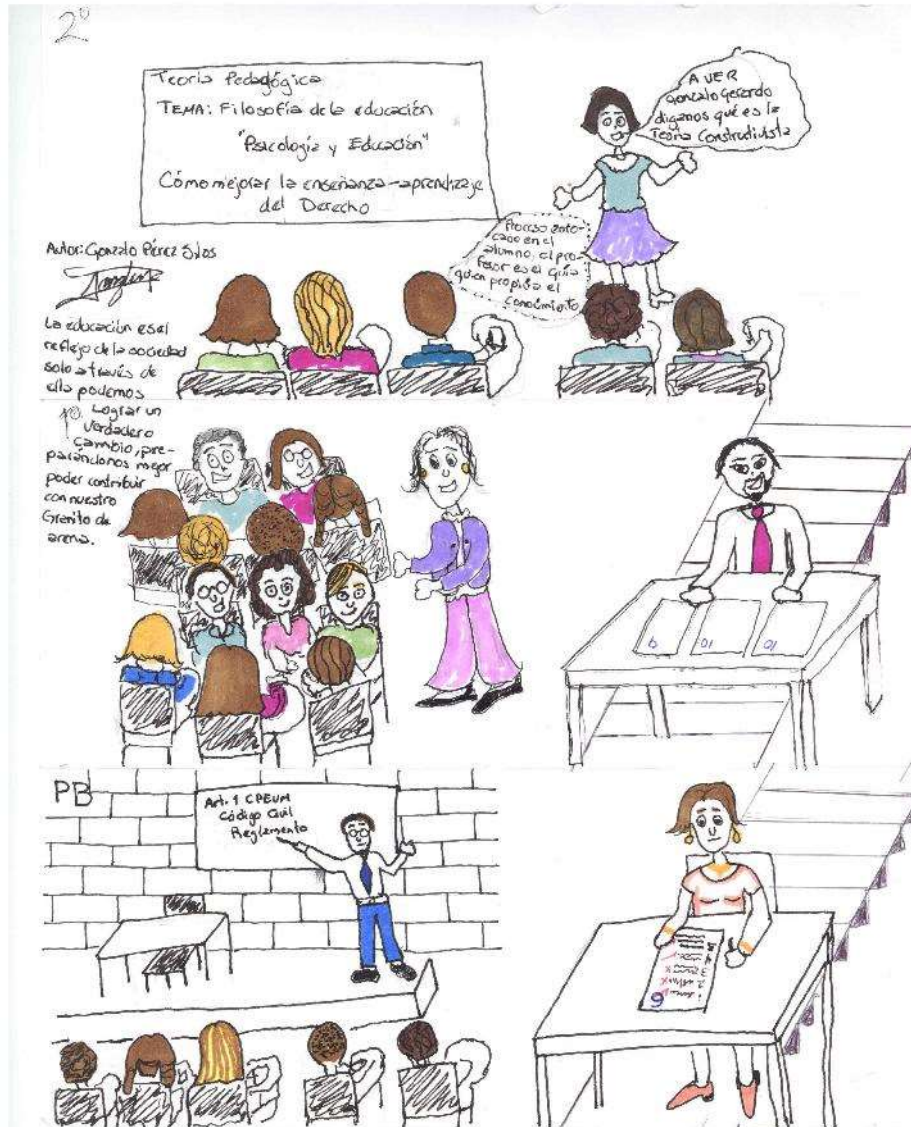 2º
Teoría Pedagógica
TEMA: Filosofía de la educación
"Psicología y Educación"
Cómo mejorar la enseñanza-aprendizaje
del Derecho
A VER
Gonzalo Gerardo
díganos qué es la
Teoría Constructivista
Proceso enfo-
cado en el
alumno, el pro-
fesor es el guía
quien propicia el
conocimiento
Autor: Gonzalo Pérez
La educación es el
reflejo de la sociedad
solo a través de
ella podemos
1º Lograr un
verdadero
cambio, pre-
parándonos mejor
poder contribuir
con nuestro
Granito de
arena.
10
10
PB
Art. 1 CPEUM
Código Civil
Reglamento
6